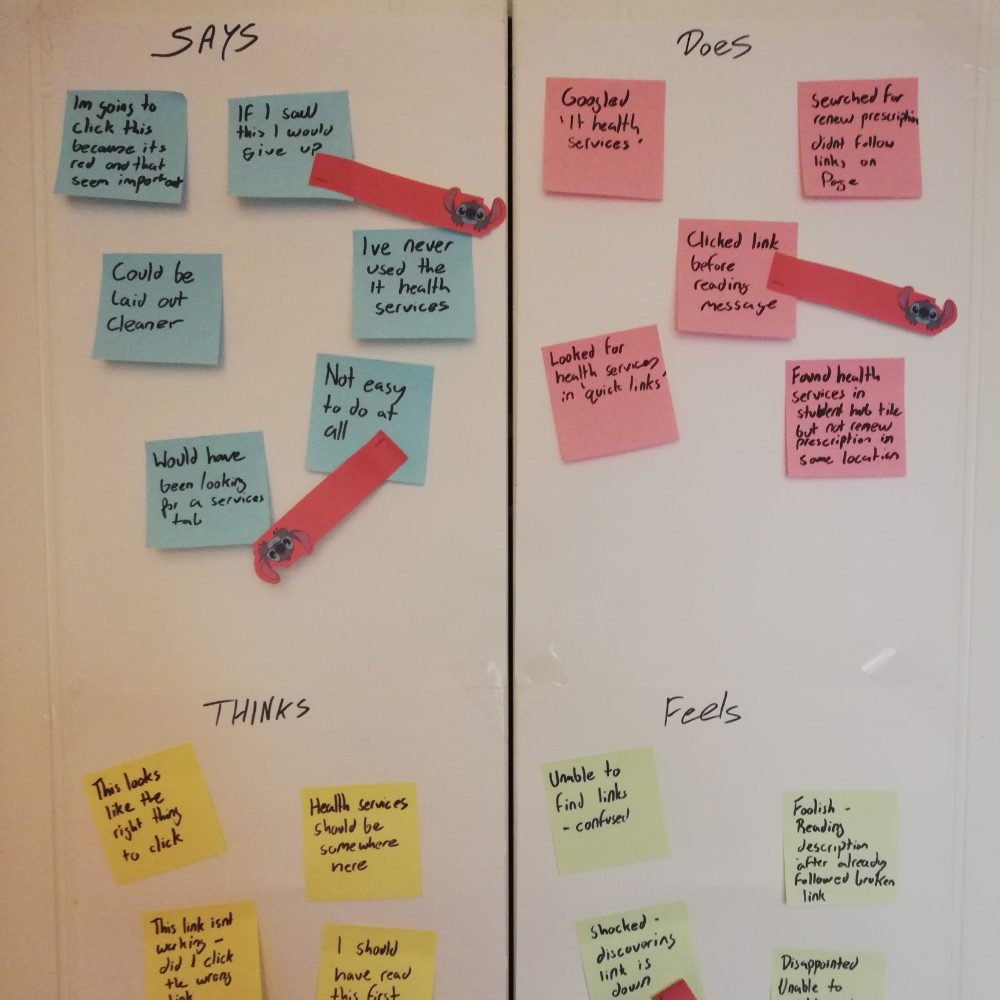 SAYS
Im going to
click this
because its
red and that
seem important
If I saw
this I would
give up
Could be
laid out
cleaner
Ive never
used the
It health
services
Not easy
to do at
all
Would have
been looking
for a services
tab
Does
Googled
'It health
services'
Searched for
renew prescription
didnt follow
links on
Page
Clicked link
before
reading
message
Looked for
health services
in 'quick links'
Found health
services in
student hub tile
but not renew
prescription in
same location
THINKS
This looks
like the
right thing
to click
Health services
should be
somewhere
here
This link isnt
working -
did I click
the wrong
link
I should
have read
this first
Feels
Unable to
find links
- confused
Foolish -
Reading
description
after already
followed broken
link
Shocked -
discovering
link is
down
Disappointed
Unable to